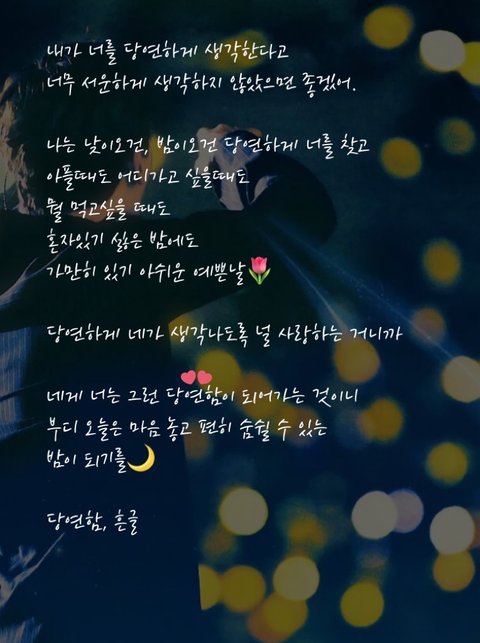 내가 너를 당연하게 생각한다고
너무 서운하게 생각하지 않았으면 좋겠어.
나는 낮이오건, 밤이오건 당연하게 너를 찾고
아플때도 어디가고 싶을때도
뭘 먹고싶을 때도
혼자있기 싫은 밤에도
가만히 있기 아쉬운 예쁜날🌷
당연하게 네가 생각나도록 널 사랑하는 거니까
네게 너는 그런 당연함이 되어가는 것이니
부디 오늘은 마음 놓고 편히 숨쉴 수 있는
밤이 되기를🌙
당연함, 흔글